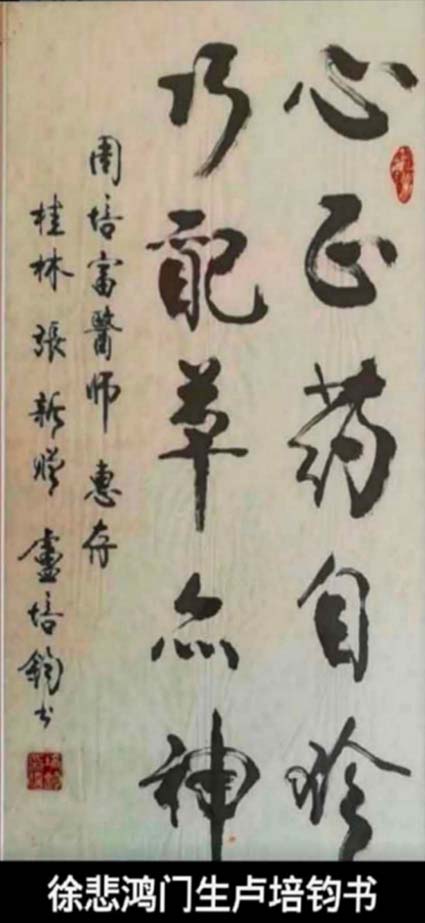 心正药自珍
巧配草亦神
周培富醫师 惠存
桂林 張新贈 盧培鈞书
徐悲鸿门生卢培钧书